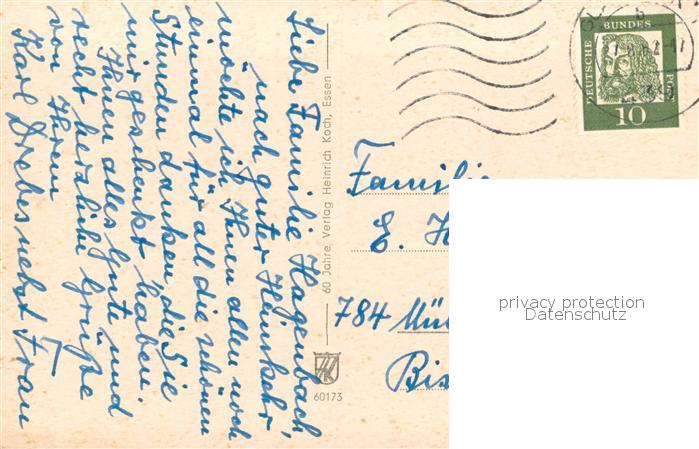 Liebe Familie Hagenbach,
nach guter Heimkehr
möchte ich Ihnen allen noch
einmal für all die schönen
Stunden danken, die Sie
mir geschenkt haben.
Ihnen alles Gute und
recht herzliche Grüße
von Ihrem
Karl Drebes nebst Frau
60 Jahre Verlag Heinrich Koch, Essen
60173
DEUTSCHE BUNDESPOST
10
Familie
E. H
784 Mü
Bis
privacy protection
Datenschutz